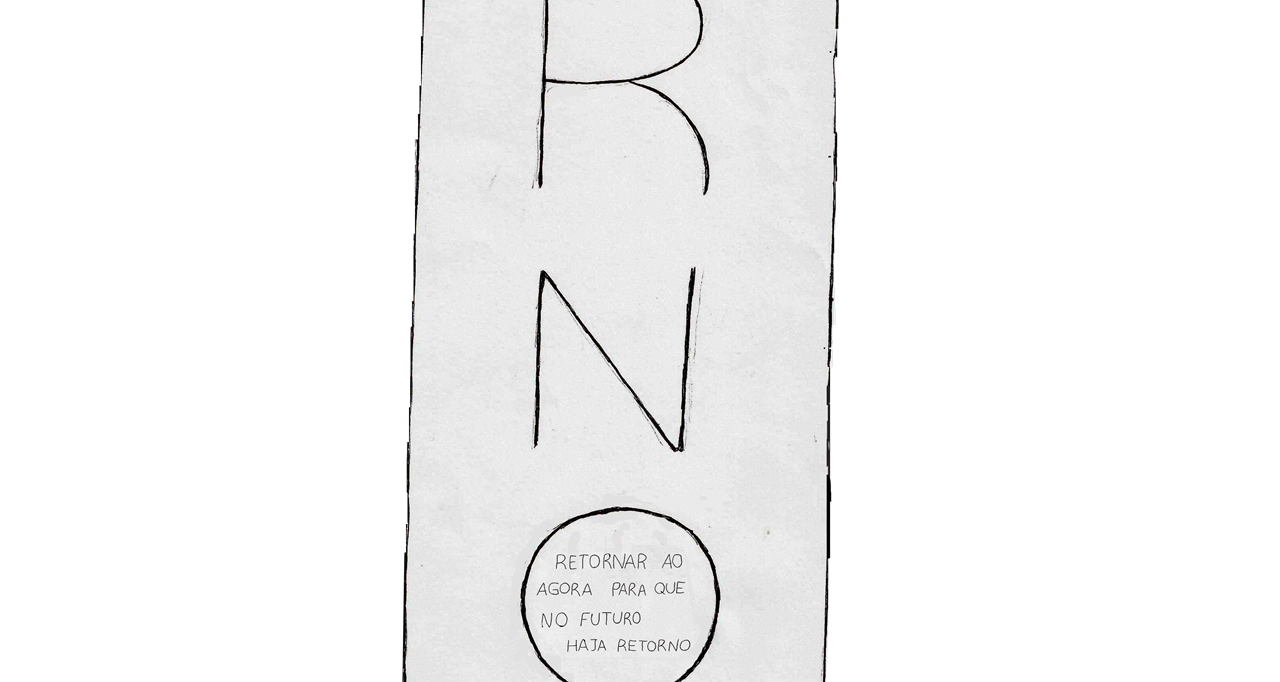 R
N
O
RETORNAR AO
AGORA PARA QUE
NO FUTURO
HAJA RETORNO